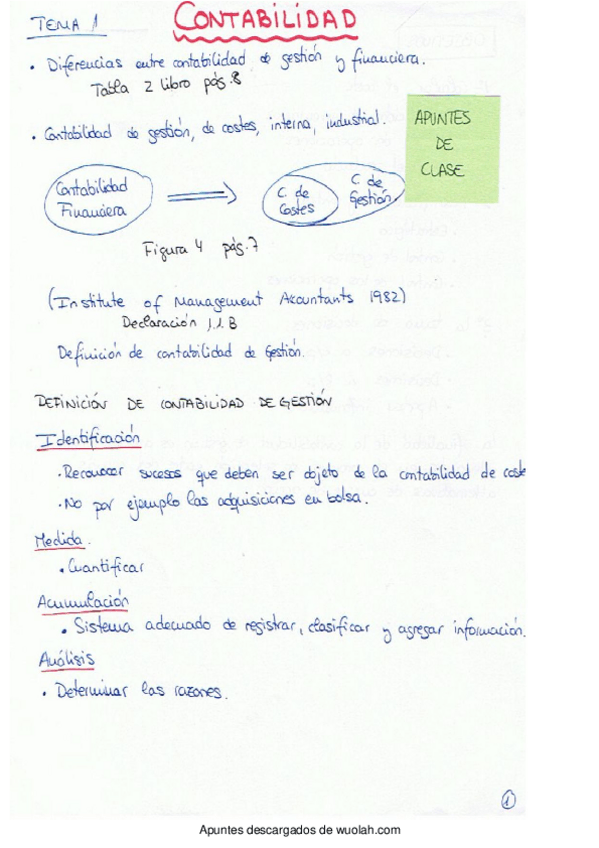 TEMA 1
CONTABILIDAD
• Diferencias entre contabilidad de gestión y financiera.
Tabla 2 libro pág. 8
• Contabilidad de gestión, de costes, interna, industrial.
APUNTES
DE
CLASE
Contabilidad
Financiera
C. de
Costes
C. de
Gestión
Figura 4 pág. 7
(Institute of Management Acountants 1982)
Declaración 1.1.B
Definición de contabilidad de Gestión.
DEFINICIÓN DE CONTABILIDAD DE GESTIÓN
Identificación
• Reconocer sucesos que deben ser objeto de la contabilidad de coste
• No por ejemplo las adquisiciones en bolsa.
Medida.
• Cuantificar
Acumulación
• Sistema adecuado de registrar, clasificar y agregar información.
Análisis
• Determinar las razones.
1
Apuntes descargados de wuolah.com